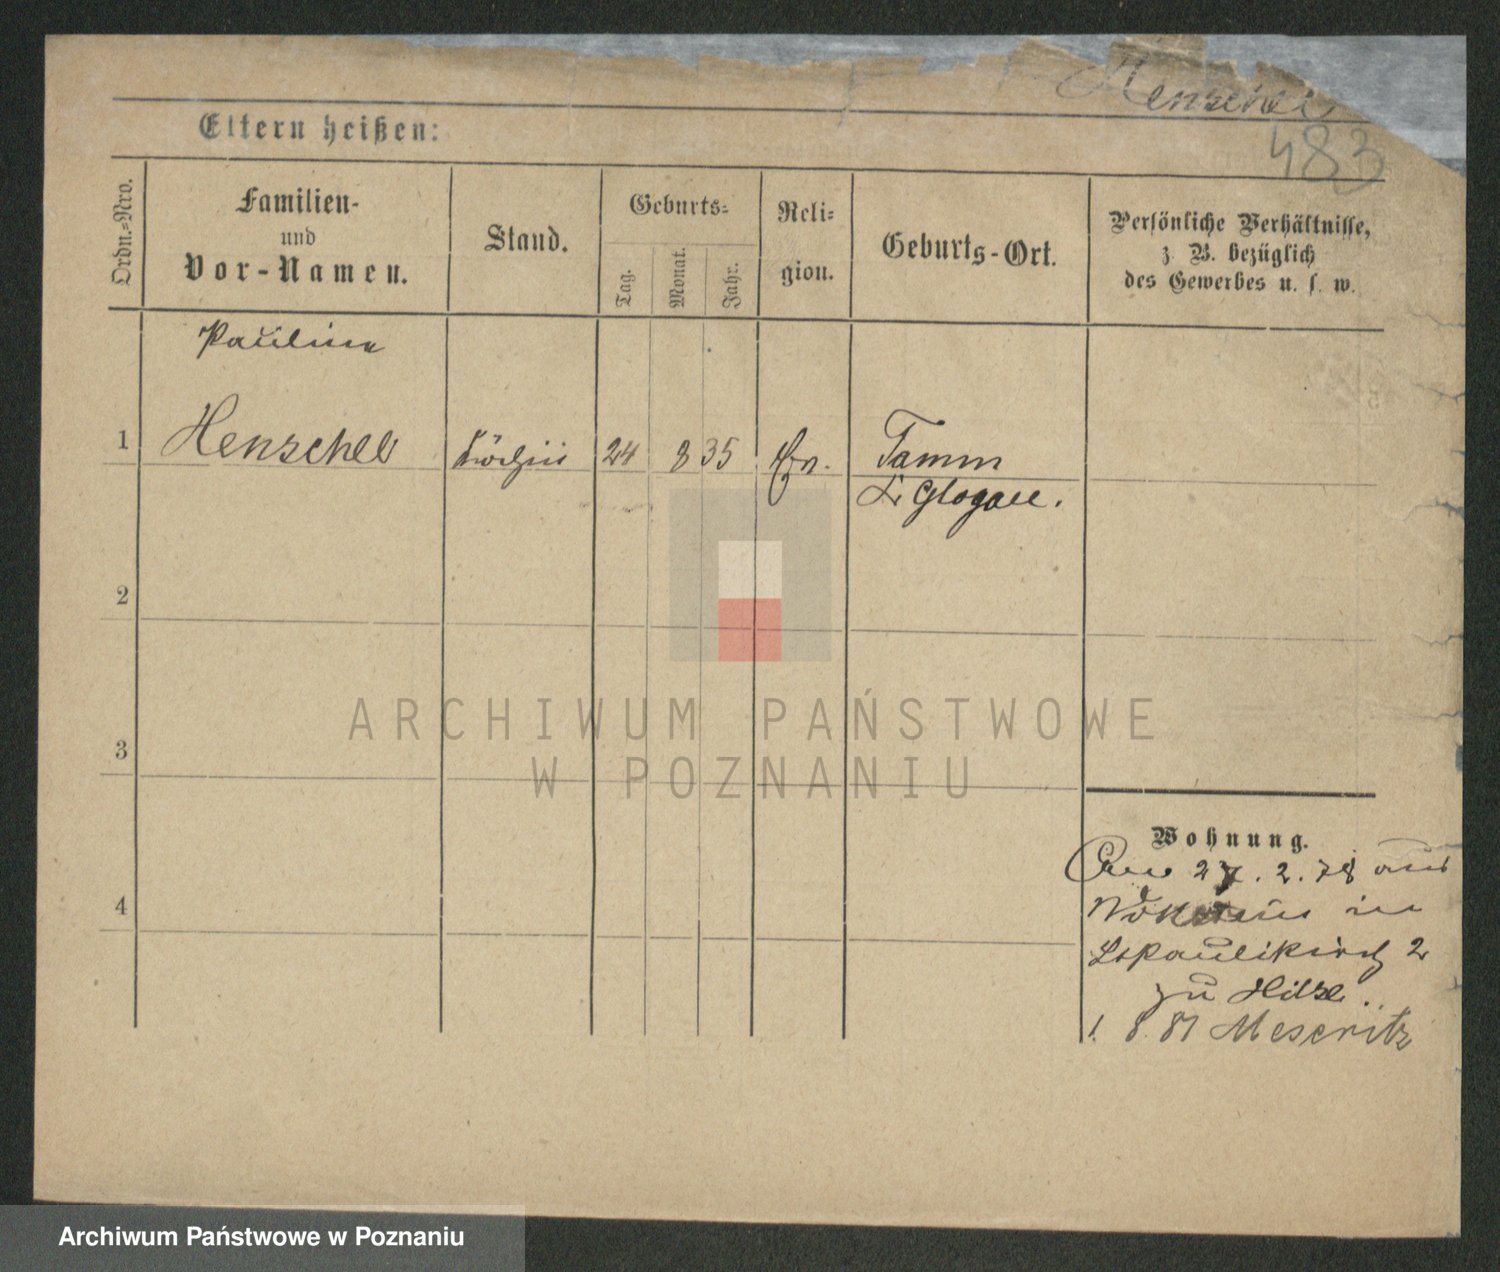 Henschel
483
Eltern heißen:
Ordn.-Nro.
Familien-
und
Vor-Namen.
Stand.
Geburts-
Tag.
Monat.
Jahr.
Reli-
gion.
Geburts-Ort.
Persönliche Verhältnisse,
z. B. bezüglich
des Gewerbes u. s. w.
Pauline
1 Henschel Köchin 24 8 35 Ev. Tamm
Kr Glogau.
2
3
4
Wohnung.
27. 2. 78 aus
in
2
zu Hilse.
1. 8. 81 Meseritz
ARCHIWUM PAŃSTWOWE
W POZNANIU
Archiwum Państwowe w Poznaniu